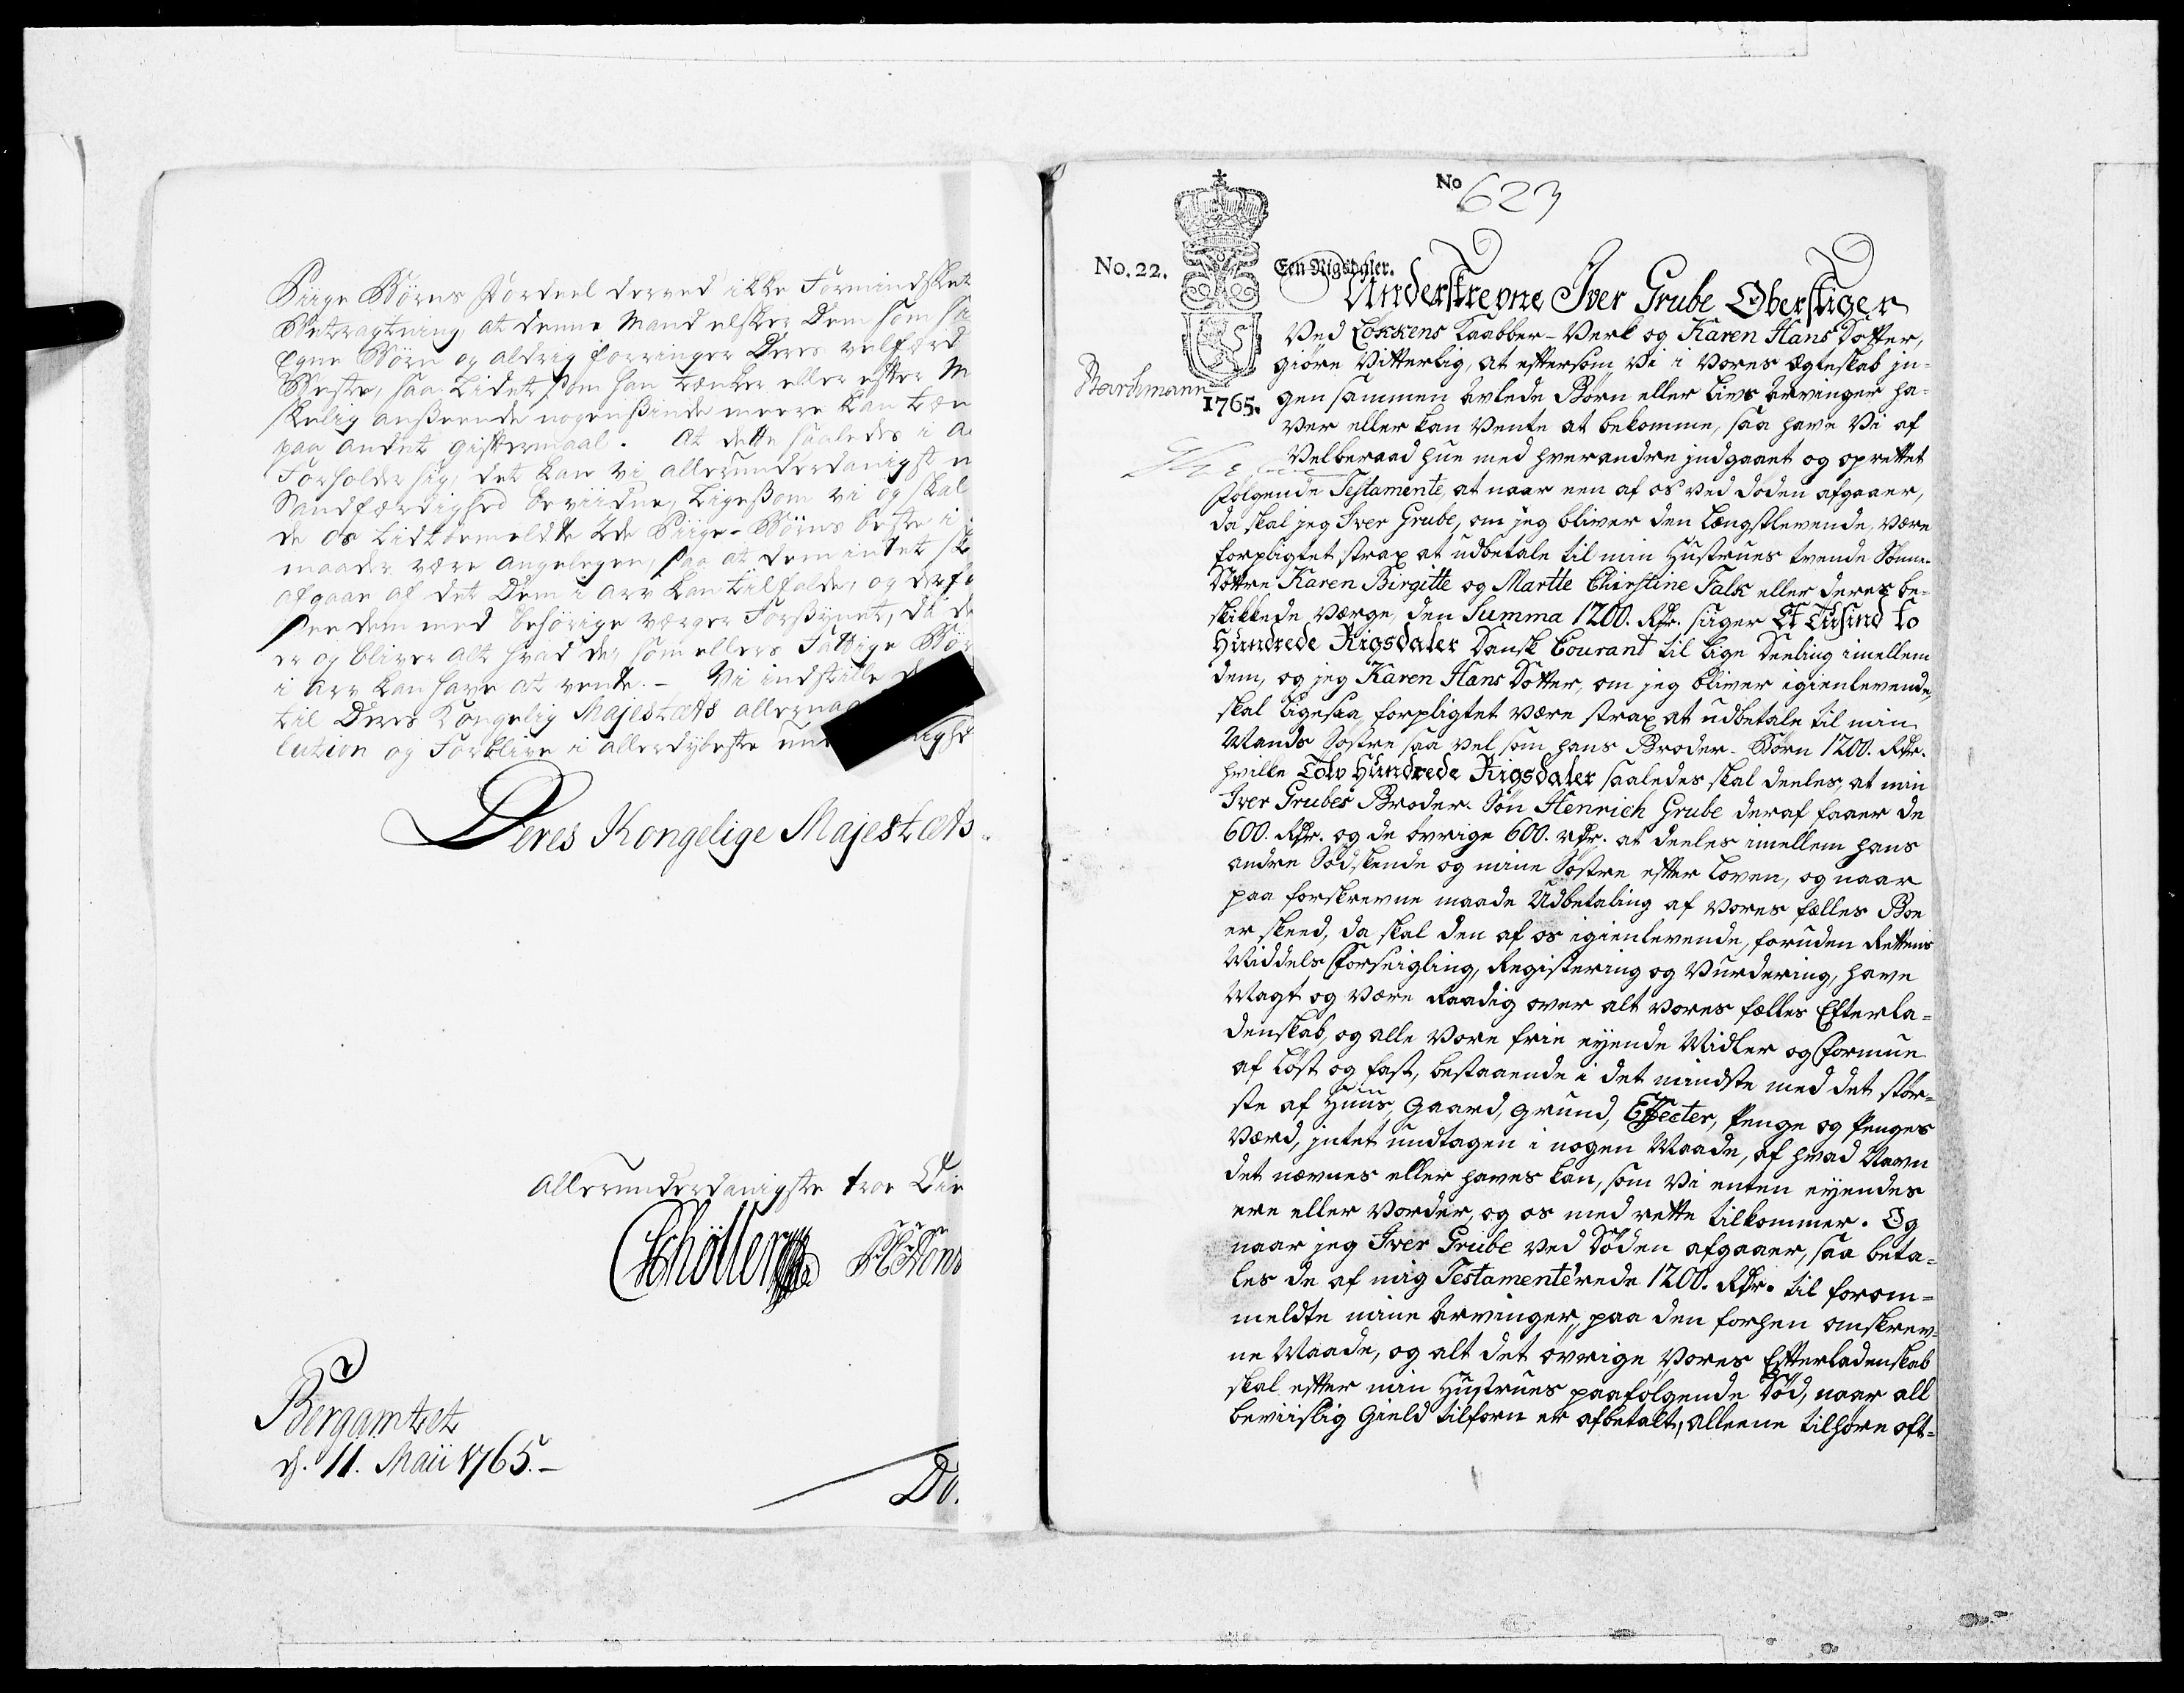 Piige Börns Fordeel derved ikke Formindskes
Betragtning, at denne Mand elsker Dem som
Egne Börn og aldrig forringer Deres velfærd
Beste, saa Lidet som han tænker eller efter
skelig anseende nogensinde meere kan
paa andet gifftermaal. At dette saaledes i
Forholder sig, det kan vi allerunderdanigst
Sandfærdighed bevidne, Ligesom vi og skal
de os Lidt bemeldte 2de Piige-Börns beste i
maader være angelegen, saa at dem intet
afgaar af det Dem i arv kan tilfalde, og
See dem med behörige værger Forsÿnet, da
er og bliver alt hvad der som ellers Fattige Bör
i arv kan have at vente. – Vi indstille
til Deres Kongelig Majestæts allernaa
lution og Forblive i allerdybeste
Deres Kongelige Majestæts
Allerunderdanigste troe
Schöller
Bergamtet
d. 11. Maii 1765.–
No 623
No. 22.
Een Rigsdaler.
1765.
Underskrevne Iver Grube Oberstiger
Ved Løkkens Kaabber-Verk og Karen Hans Dotter,
giöre Vitterlig, at eftersom Vi i Vores Ægteskab in-
gen sammen avlede Börn eller Livs Arvinger ha-
ver eller kan Vente at bekomme, saa have Vi af
Velberaad Hue med hverandre indgaaet og oprettet
følgende Testamente, at naar een af os ved Döden afgaaer,
da skal jeg Iver Grube, om jeg bliver den længstlevende, være
forpligtet strax at udbetale til min Hustrues tvende Sönne-
Döttre Karen Birgitte og Martte Chirstine Falk eller deres be-
skikkede Værge, den Summa 1200. Rdr. siger Et Tusind to
Hundrede Rigsdaler Dansk Courant til Lige Deeling imellem
dem, og jeg Karen Hans Dotter, om jeg bliver igienlevende,
skal Ligesaa forpligtet være strax at udbetale til min
Mands Söstre saa vel som hans Broder-Börn 1200. Rdr.
hvilke Tolv Hundrede Rigsdaler saaledes skal deeles, at min
Iver Grubes Broder-Sön Henrich Grube deraf faaer de
600. Rdr. og de övrige 600. rdr. at deeles imellem hans
andre Södskende og mine Söstre efter Loven, og naar
paa forskrevne maade Udbetaling af Vores fælles Boe
er skeed, da skal den af os igienlevende, foruden Rettens
Middels Forseigling, Registering og Vurdering, have
Magt og være Raadig over alt Vores fælles Efterla-
denskab, og alle Vore frie eyende Midler og Formue
af Löst og fast, bestaaende i det mindste med det stör-
ste af Huus, Gaard, Grund, Effecter, Penge og Penges
Værd, intet undtagen i nogen Maade, af hvad Navn
det nævnes eller haves kan, som Vi enten eyendes
ere eller Vorder, og os med rette tilkommer. Og
naar jeg Iver Grube ved Döden afgaaer, saa beta-
les de af mig Testamenterede 1200. Rdr. til forom-
meldte mine Arvinger, paa den forhen omskrev-
ne Maade, og alt det övrige Vores Efterladenskab
skal efter min Hustrues paafölgende Död, naar all
beviislig Gield tilforn er afbetalt, alleene tilhöre oft-